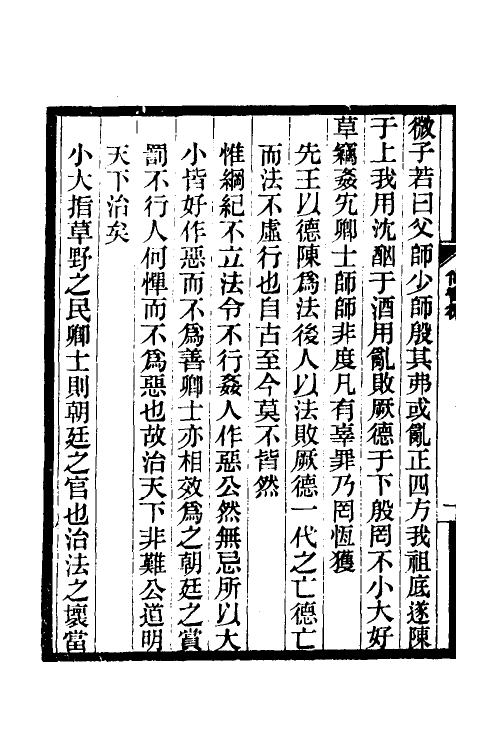 微子若曰父師少師殷其弗或亂正四方我祖底遂陳
于上我用沈酗于酒用亂敗厥德于下殷罔不小大好
草竊姦宄卿士師師非度凡有辜罪乃罔恆獲
先王以德陳爲法後人以法敗厥德一代之亡德亡
而法不虛行也自古至今莫不皆然
惟綱紀不立法令不行姦人作惡公然無忌所以大
小皆好作惡而不爲善卿士亦相效爲之朝廷之賞
罰不行人何憚而不爲惡也故治天下非難公道明
天下治矣
小大指草野之民卿士則朝廷之官也治法之壞當